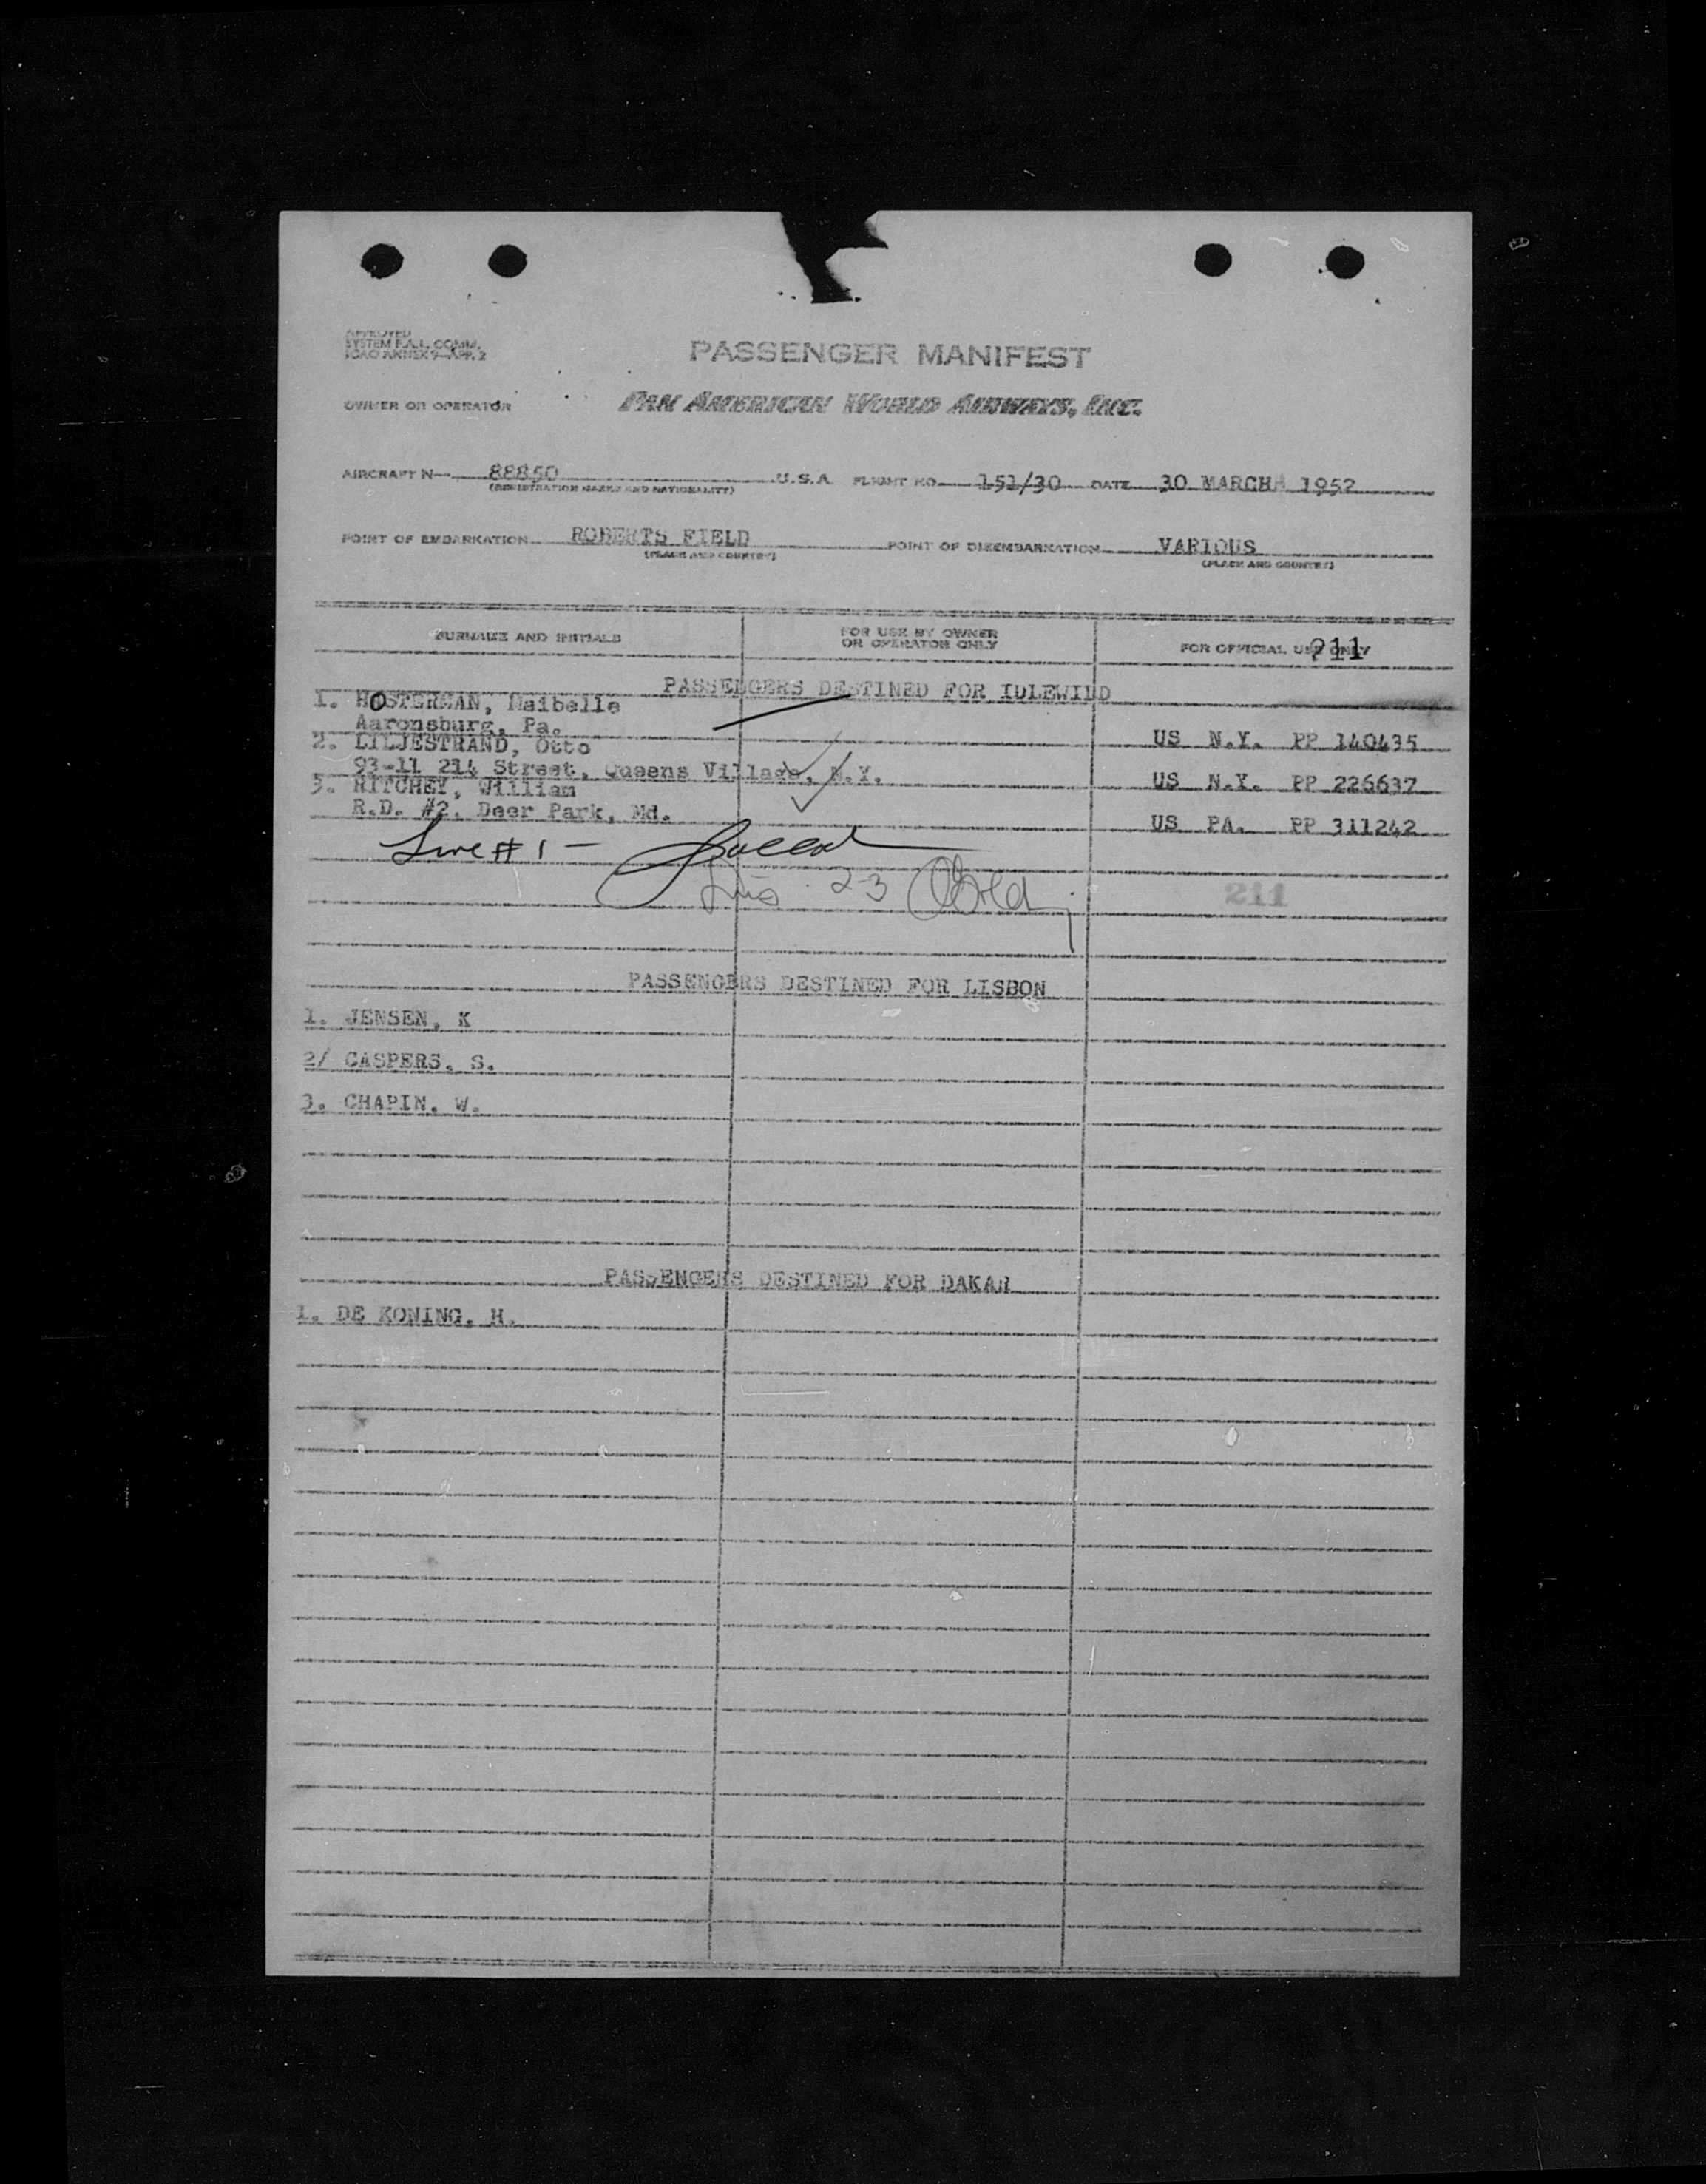 APPROVED
SYSTEM F.A.L. COMM.
ICAO ANNEX 9-APP. 2
PASSENGER MANIFEST
OWNER OR OPERATOR
PAN AMERICAN WORLD AIRWAYS, INC.
AIRCRAFT N— 88850 U.S.A. FLIGHT NO. 151/30 DATE 30 MARCH 1952
(REGISTRATION MARKS AND NATIONALITY)
POINT OF EMBARKATION ROBERTS FIELD POINT OF DISEMBARKATION VARIOUS
(PLACE AND COUNTRY) (PLACE AND COUNTRY)
SURNAME AND INITIALS FOR USE BY OWNER OR OPERATOR ONLY FOR OFFICIAL USE ONLY 211
PASSENGERS DESTINED FOR IDLEWILD
1. HOSTERMAN, Maibelle
Aaronsburg, Pa. US N.Y. PP 140435
2. LILJESTRAND, Otto
93-11 214 Street, Queens Village, N.Y. US N.Y. PP 226637
3. RITCHEY, William
R.D. #2, Deer Park, Md. US PA. PP 311242
Line # 1 —
2-3
211
PASSENGERS DESTINED FOR LISBON
1. JENSEN, K
2/ CASPERS, S.
3. CHAPIN, W.
PASSENGERS DESTINED FOR DAKAR
1. DE KONING, H.